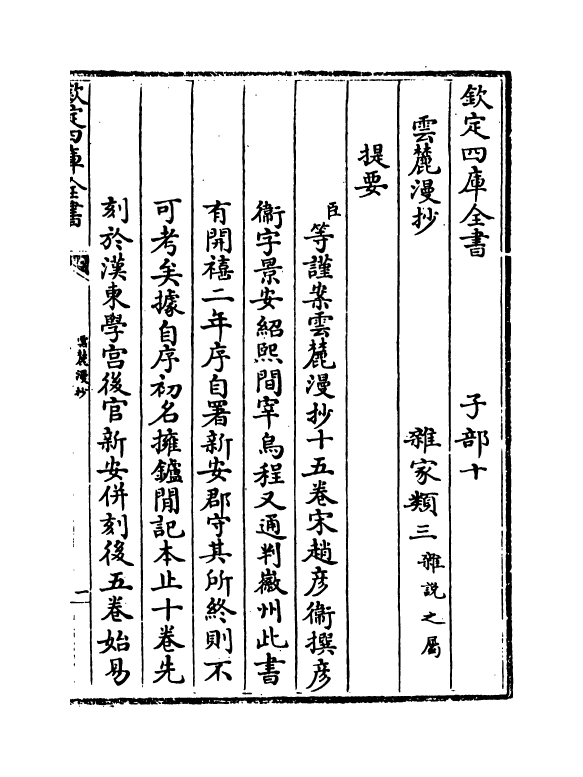 欽定四庫全書　子部十
雲麓漫抄　雜家類三雜說之屬
提要
臣等謹案雲麓漫抄十五卷宋趙彦衞撰彦
衞字景安紹熙間宰烏程又通判徽州此書
有開禧二年序自署新安郡守其所終則不
可考矣據自序初名擁鑪閒記本止十卷先
刻於漢東學宫後官新安併刻後五卷始易
欽定四庫全書
雲麓漫抄
一